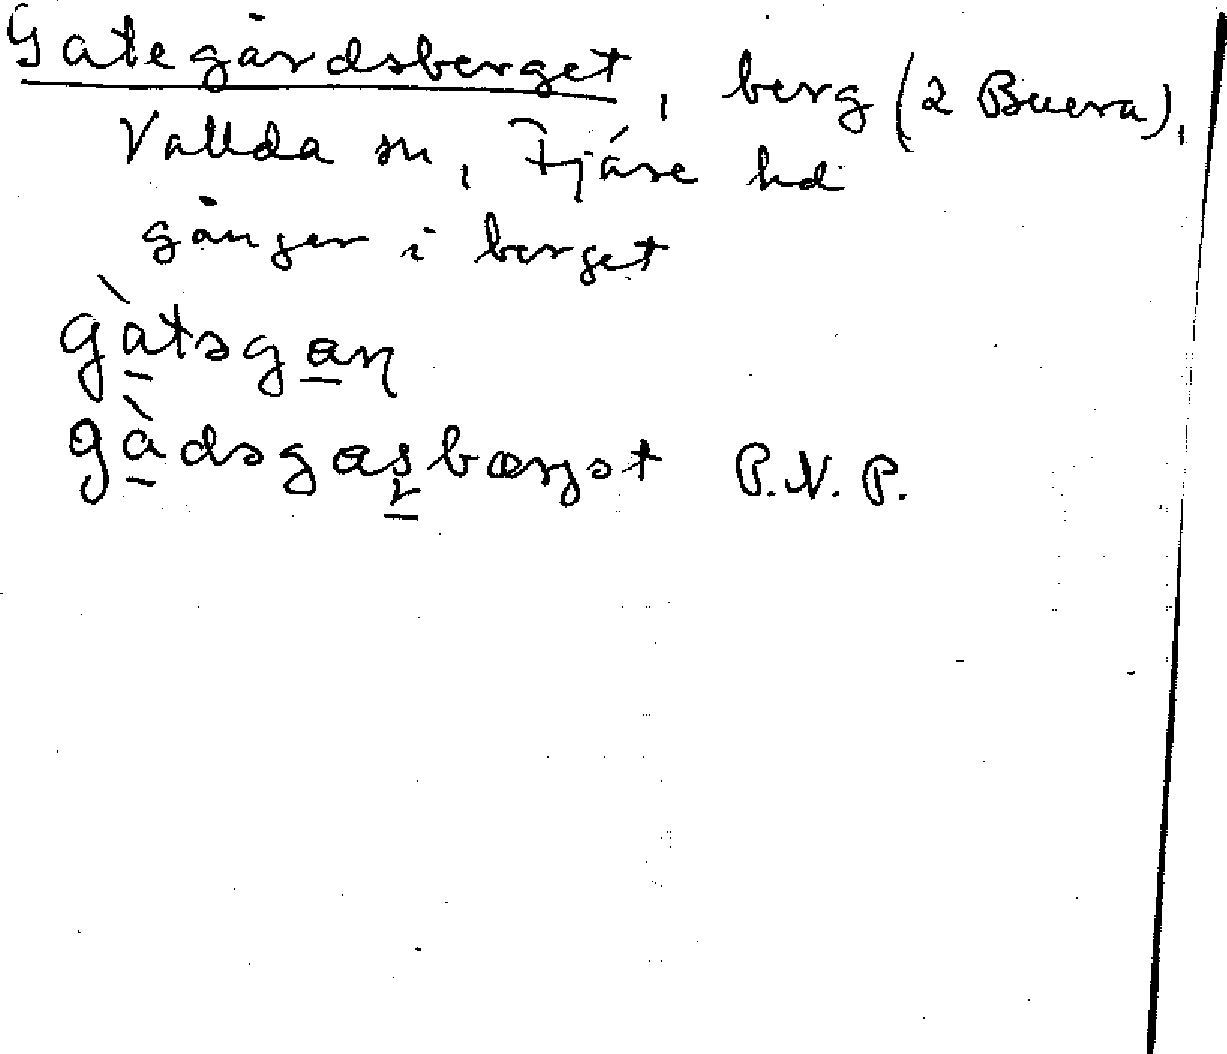 Gategårdsberget, berg (2 Buera),
Vallda sn, Fjäre hd
gången i berget
gàtəgaɳ
gàdəgaʂbærgət P.N.P.